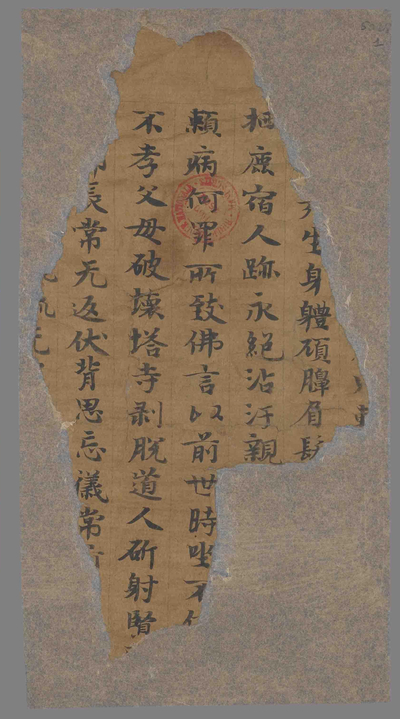 生身軆頑脾眉
栖鹿宿人跡永絕沾汙親
癩病何罪所致佛言以前世時坐不
不孝父母破壞塔寺剥脫道人斫射賢
師長常无返伏背恩忘儀常